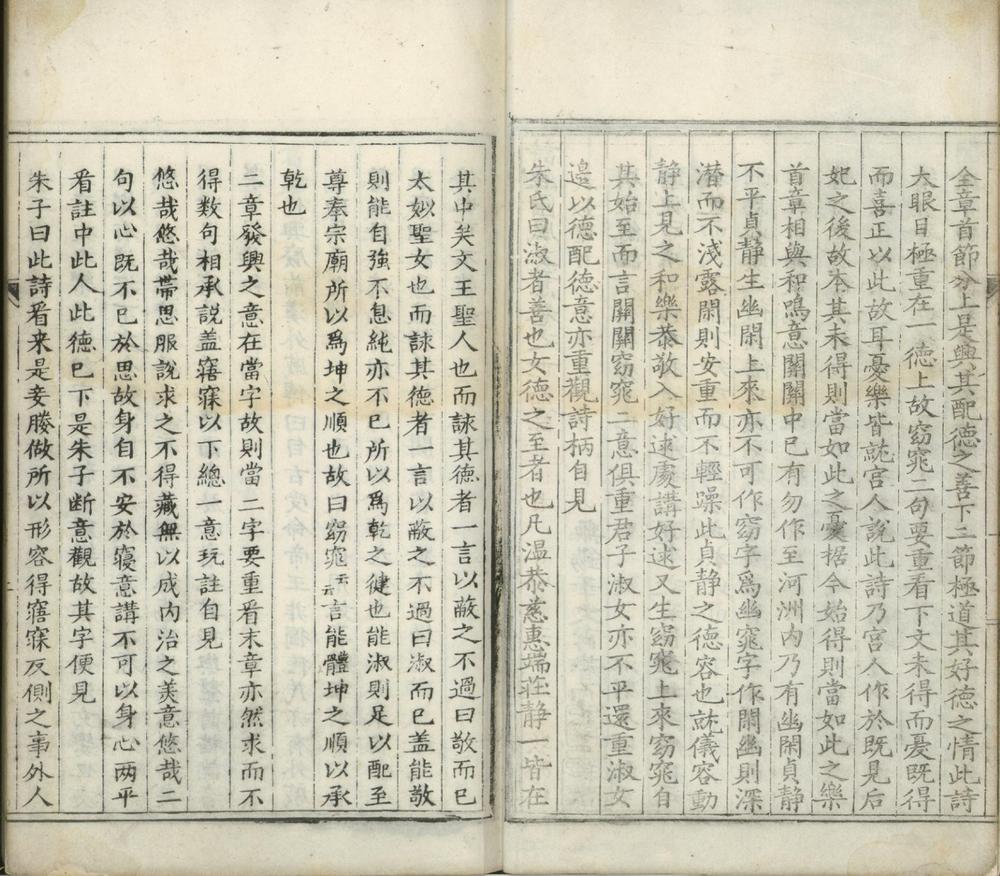 全章首節分上是興其配德之善下二節極道其好德之情此詩
大眼目極重在一德上故窈窕二句要重看下文未得而憂既得
而喜正以此故耳憂樂皆就宮人說此詩乃宮人作於既見后
妃之後故本其未得則當如此之憂据今始得則當如此之樂
首章相與和鳴意關關中已有勿作至河洲内乃有幽閑貞静
不平貞静生幽閑上來亦不可作窈字爲幽窕字作閑幽則深
潜而不淺露閑則安重而不輕躁此貞静之德容也就儀容動
静上見之和樂恭敬入好逑處講好逑又生窈窕上來窈窕自
其始至而言關關窈窕二意俱重君子淑女亦不平還重淑女
邉以德配德意亦重觀詩柄自見
朱氏曰淑者善也女德之至者也凡温恭慈惠端莊静一皆在
其中矣文王聖人也而詠其德者一言以蔽之不過曰敬而已
太妙聖女也而詠其德者一言以蔽之不過曰淑而已盖能敬
則能自強不息純亦不已所以爲乾之健也能淑則足以配至
尊奉宗廟所以爲坤之順也故曰窈窕云云言能體坤之順以承
乾也
二章發興之意在當字故則當二字要重看末章亦然求而不
得数句相承說盖寤寐以下總一意玩註自見
悠哉悠哉帶思服說求之不得藏無以成内治之美意悠哉二
句以心既不已於思故身自不安於寢意講不可以身心两平
看註中此人此德已下是朱子断意觀故其字便見
朱子曰此詩看来是妾媵做所以形容得寤寐反側之事外人